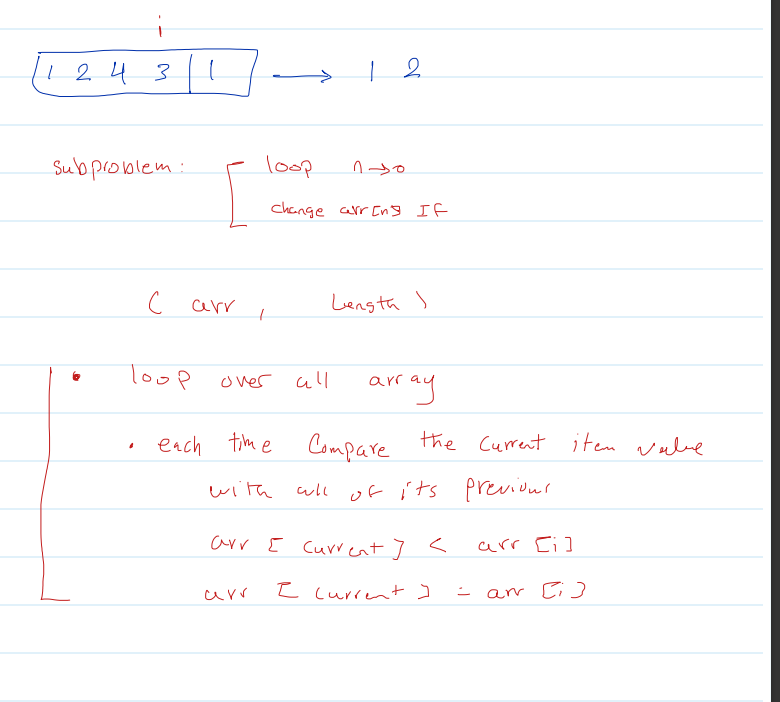 i
1 2 4 3 | 1 → 1 2
subproblem: loop n→0
change arr[n] If
( arr , Length )
• loop over all array
• each time Compare the current item value
with all of its previous
arr [ current ] < arr [i]
arr [ current ] = arr [i]